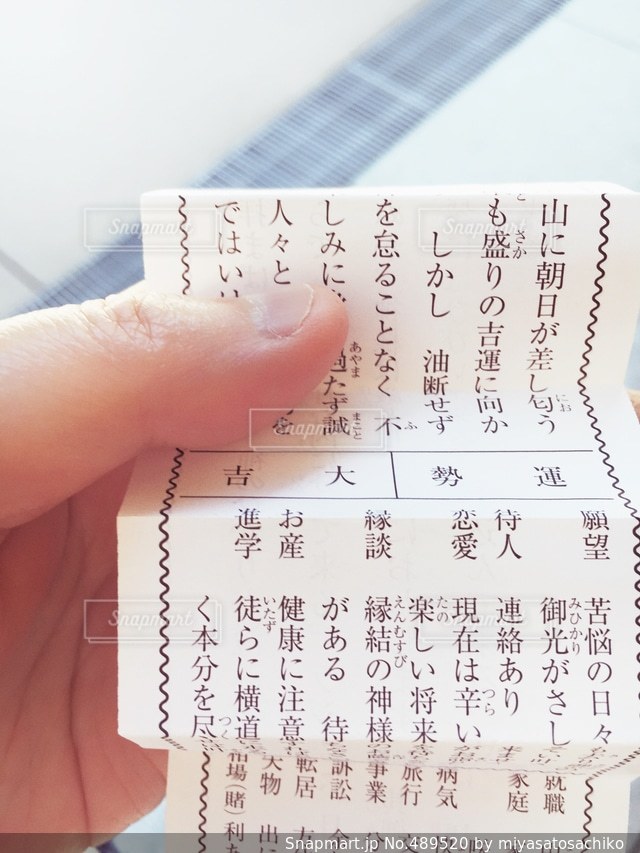 山に朝日が差し匂う
も盛りの吉運に向か
しかし　油断せず
を怠ることなく　不
しみに　過たず誠
人々と
ではい
運勢　大吉
願望　苦悩の日々
御光がさし
待人　連絡あり
恋愛　現在は辛い
楽しい将来
縁談　縁結の神様
がある　待
お産　健康に注意
進学　徒らに横道
く本分を尽
就職
家庭
病気
旅行
事業
訴訟
転居
失物　出
相場（賭）利
Snapmart
Snapmart
Snapmart
Snapmart
Snapmart
Snapmart.jp No.489520 by miyasatosachiko